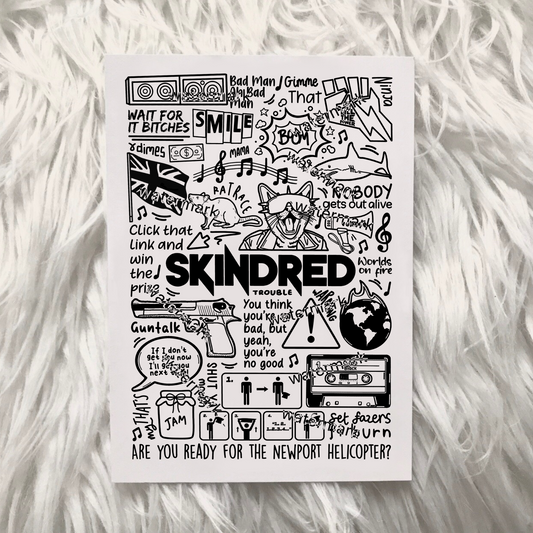 Bad Man
Bad
Man
Gimme
That
Ninja
WAIT FOR
IT BITCHES
SMILE
BOOM
dimes
MAMA
RAT RACE
NOBODY
gets out alive
Click that
link and
win
the
prize
SKINDRED
TROUBLE
Worlds
on fire
WARNING
Guntalk
You think
you're
bad, but
yeah,
you're
no good
If I don't
get you now
I'll get you
next
SHUT
THAT'S
My
JAM
1.
Set fazers
ARE YOU READY FOR THE NEWPORT HELICOPTER?